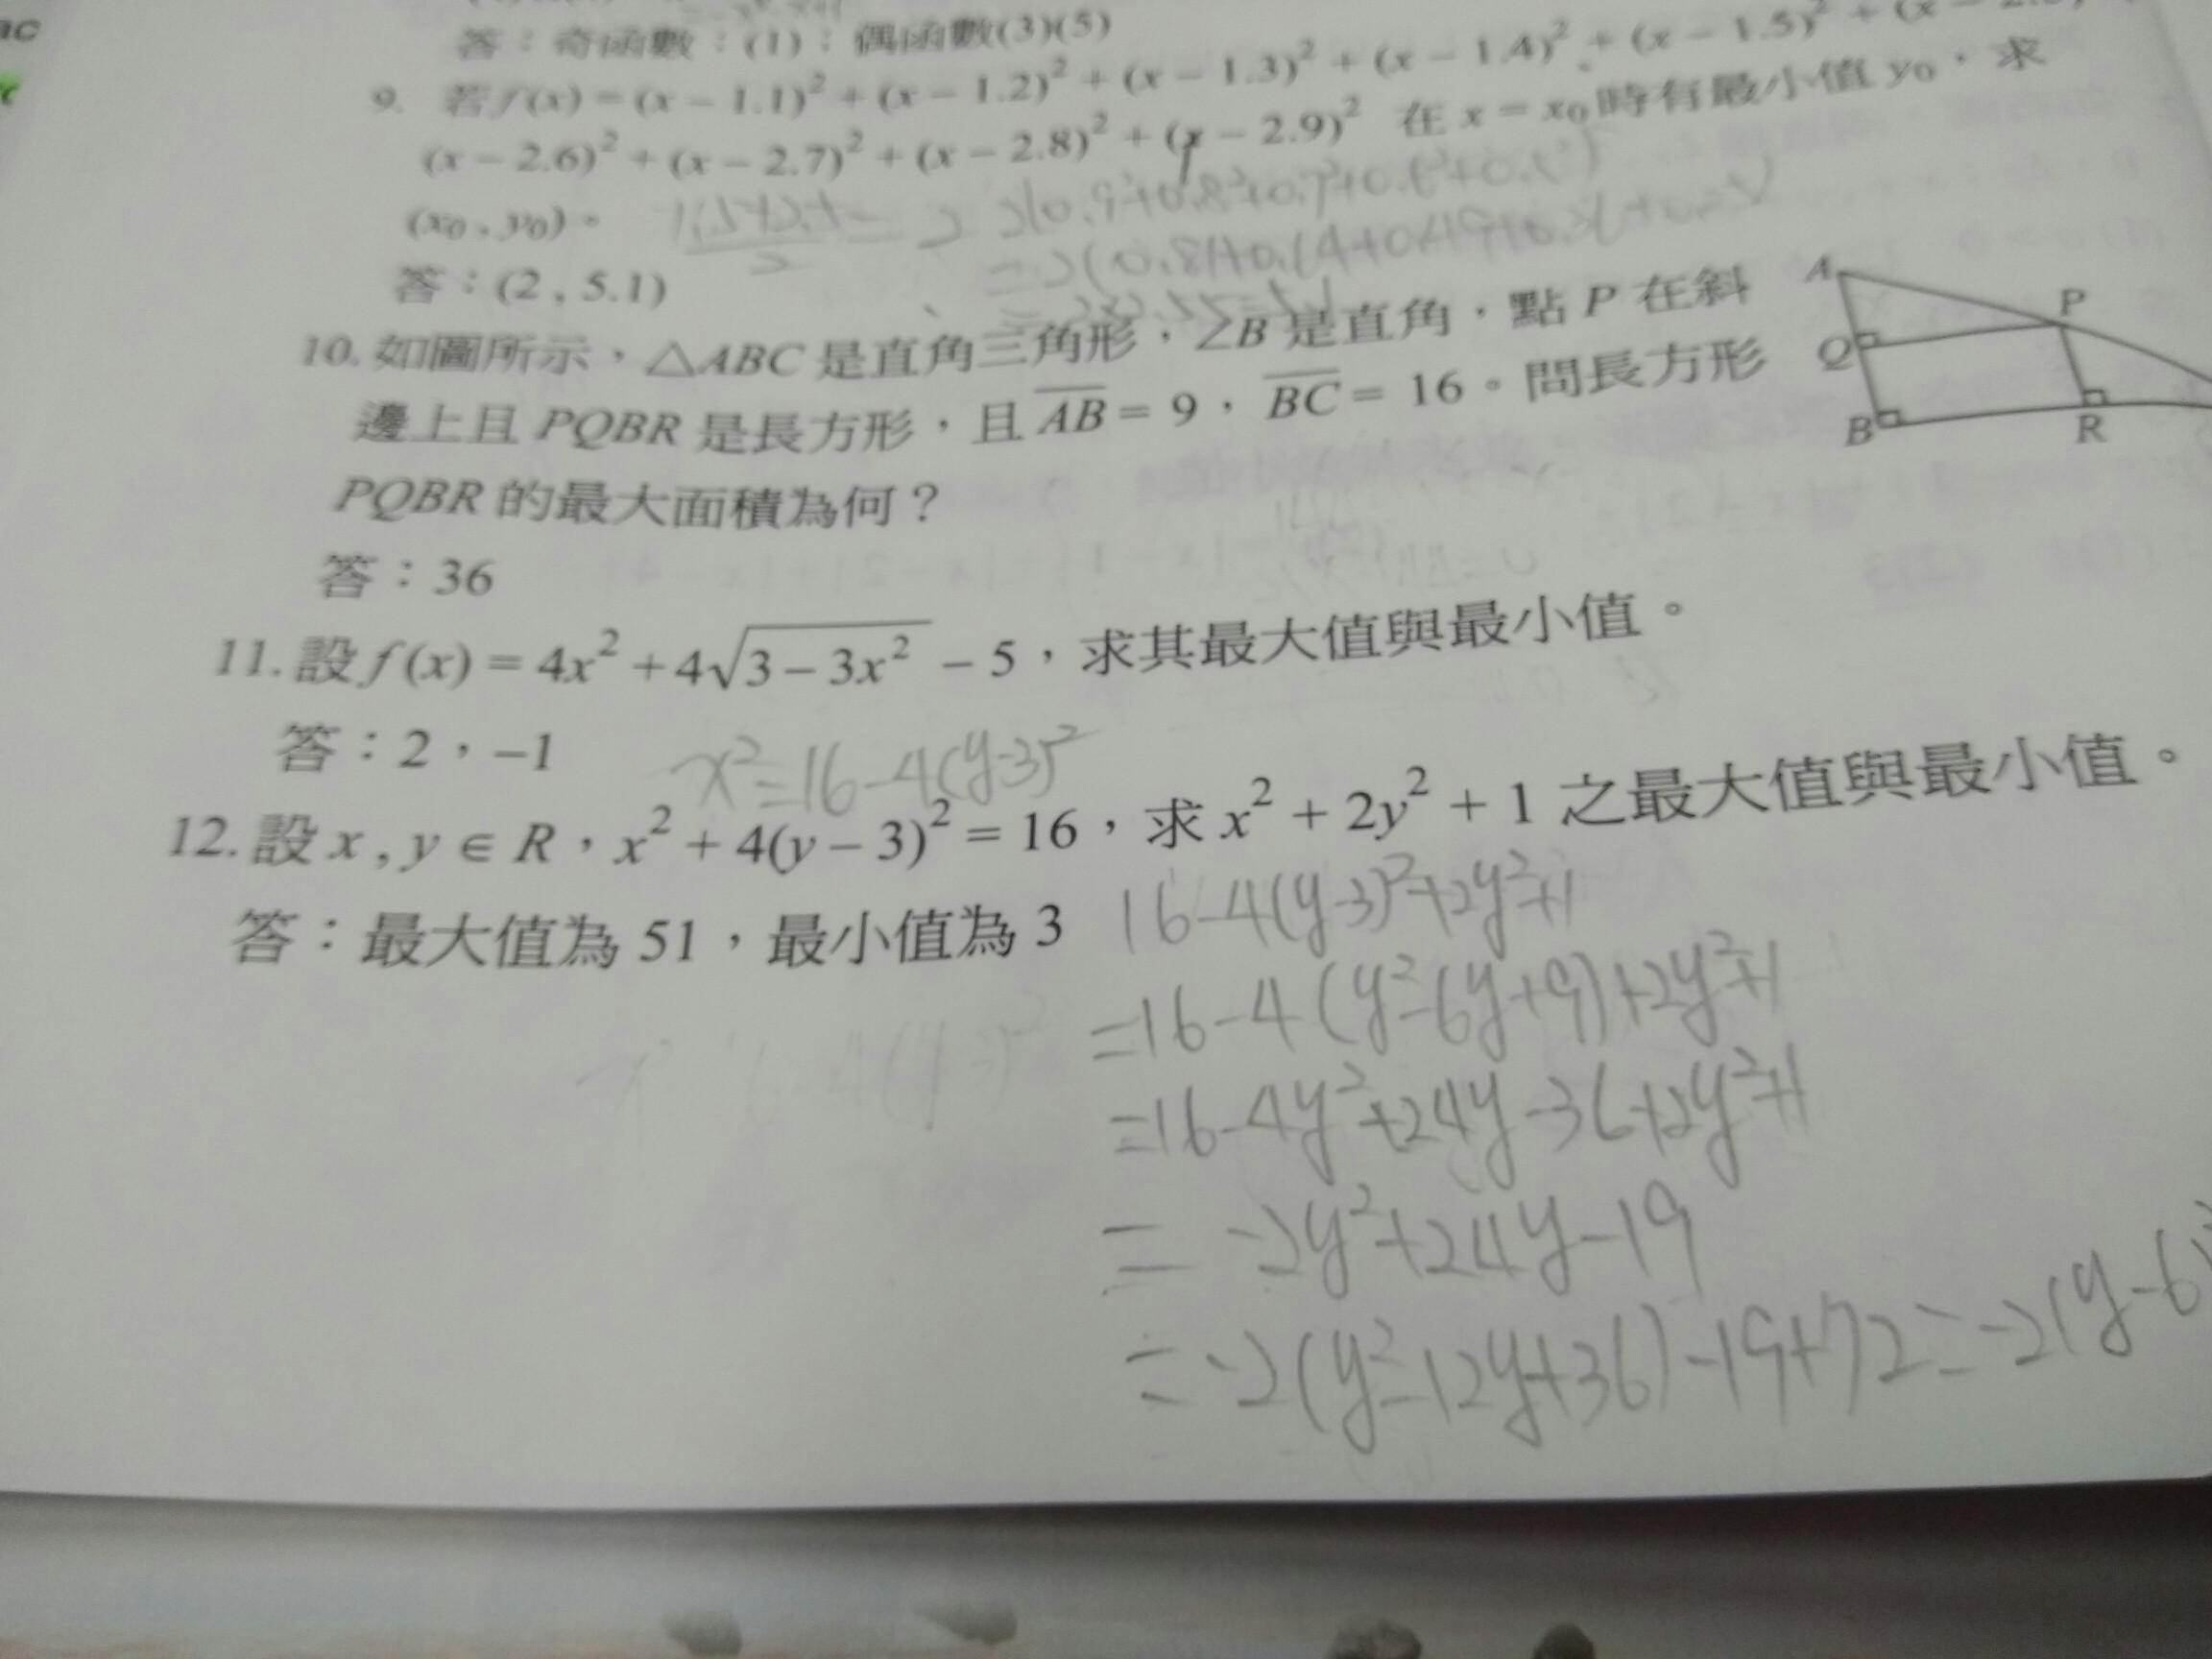 答：奇函數：(1)；偶函數(3)(5)
9. 若f(x) = (x − 1.1)² + (x − 1.2)² + (x − 1.3)² + (x − 1.4)² + (x − 1.5)² + (x −
(x − 2.6)² + (x − 2.7)² + (x − 2.8)² + (x − 2.9)² 在 x = x₀ 時有最小值 y₀，求
(x₀ , y₀)。
答：(2 , 5.1)
10. 如圖所示，△ABC 是直角三角形，∠B 是直角，點 P 在斜
邊上且 PQBR 是長方形，且 \overline{AB} = 9，\overline{BC} = 16。問長方形
PQBR 的最大面積為何？
A
P
Q
B
R
答：36
11. 設 f(x) = 4x² + 4√(3 − 3x²) − 5，求其最大值與最小值。
答：2，−1
x²=16-4(y-3)²
12. 設 x , y ∈ R，x² + 4(y − 3)² = 16，求 x² + 2y² + 1 之最大值與最小值。
答：最大值為 51，最小值為 3
16-4(y-3)²+2y²+1
=16-4(y²-6y+9)+2y²+1
=16-4y²+24y-36+2y²+1
= -2y²+24y-19
= -2(y²-12y+36)-19+72=-2(y-6)